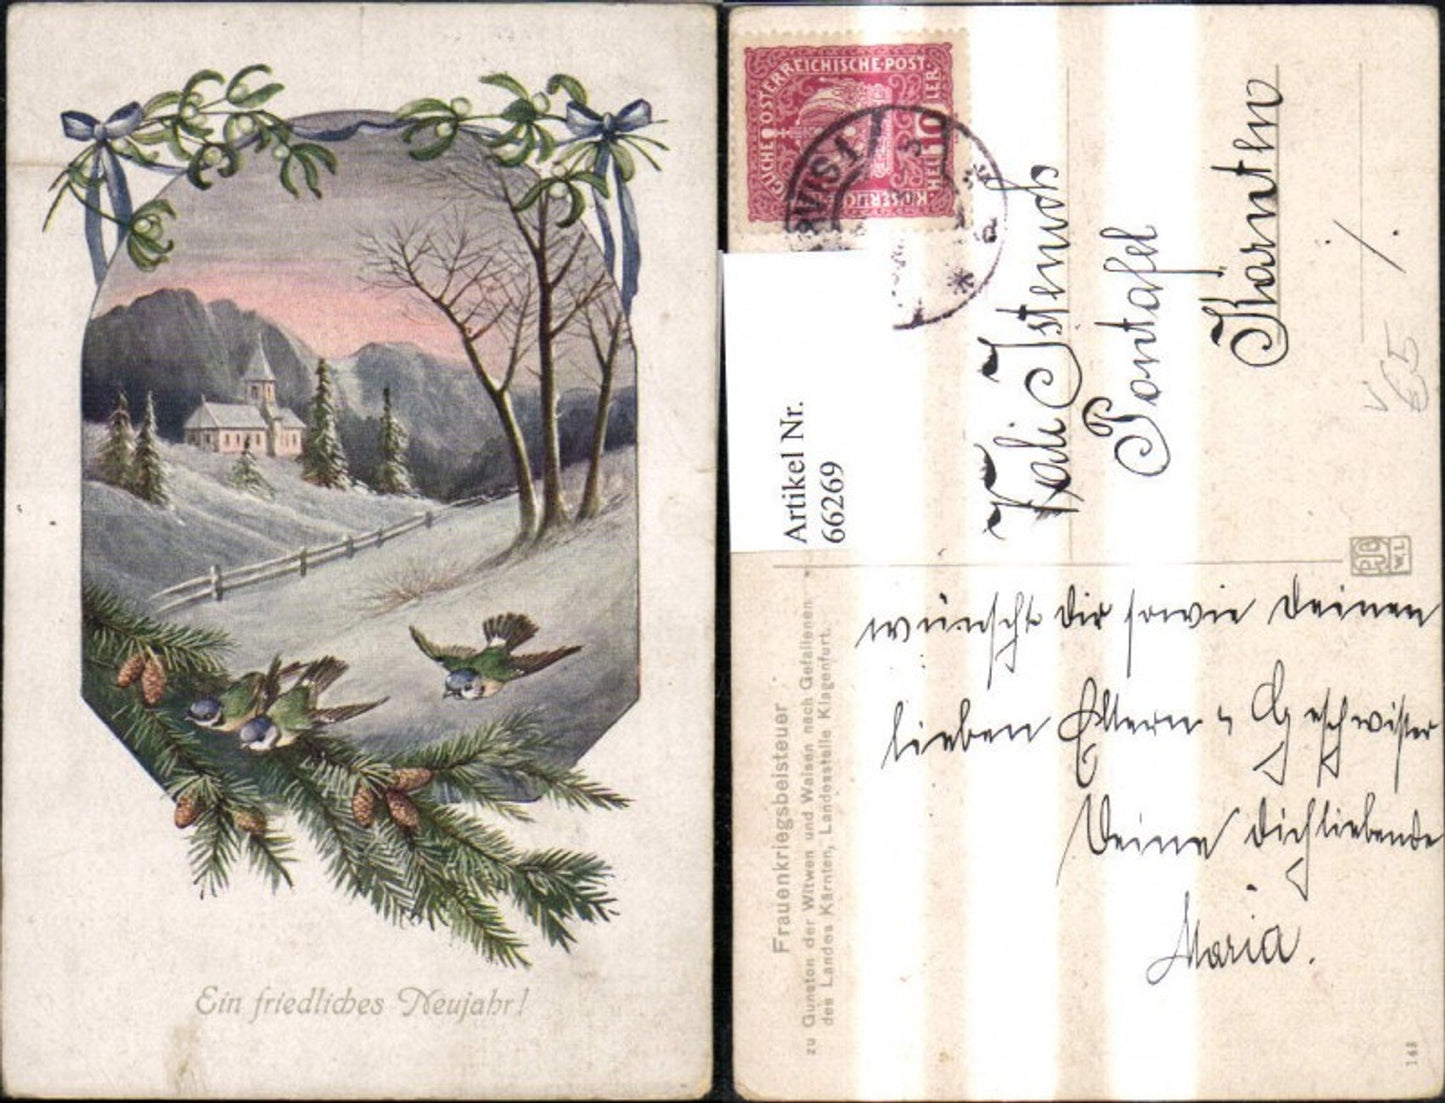 Ein friedliches Neujahr!
ÖSTERREICHISCHE·POST
10
HELLER
Artikel Nr.
66269
Pontafel
Kärnten
wünscht Dir sowie Deinen
lieben Eltern u Geschwister
Deine Dich liebende
Maria.
Frauenkriegsbeisteuer
zu Gunsten der Witwen und Waisen nach Gefallenen
des Landes Kärnten, Landesstelle Klagenfurt.
W.L
145